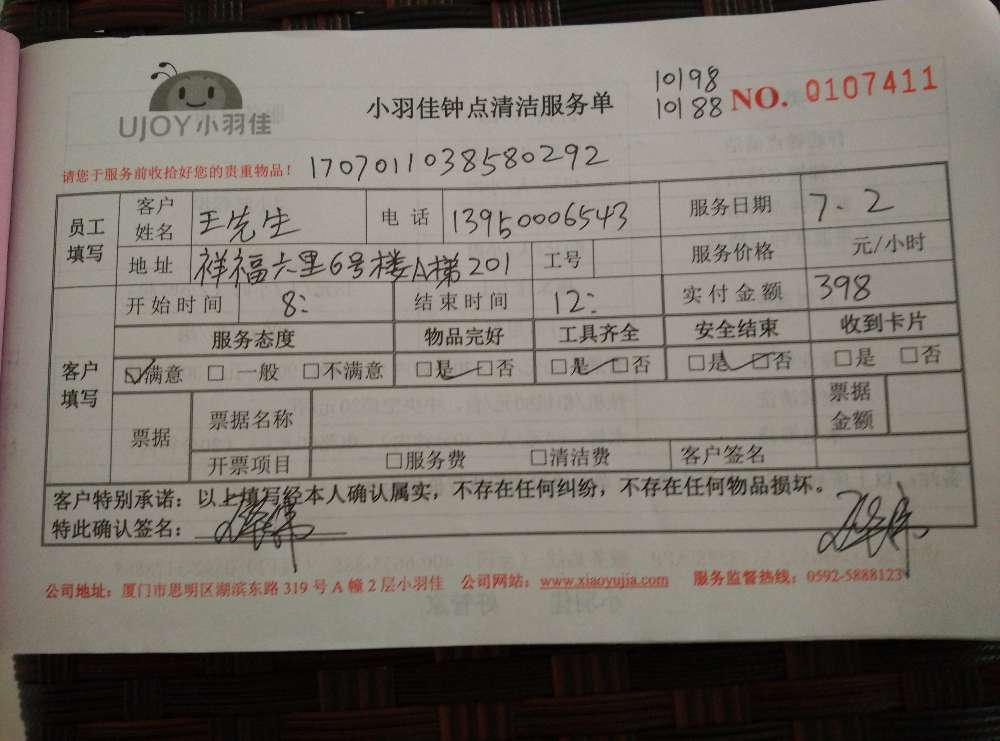 UJOY小羽佳
小羽佳钟点清洁服务单
10198
10188
NO. 0107411
请您于服务前收拾好您的贵重物品！ 1707011038580292
员工填写 客户姓名 王先生 电话 13950006543 服务日期 7.2
地址 祥福六里6号楼A梯201 工号 服务价格 元/小时
客户填写 开始时间 8: 结束时间 12: 实付金额 398
服务态度 物品完好 工具齐全 安全结束 收到卡片
☑满意 □一般 □不满意 □是 □否 □是 □否 □是 □否 □是 □否
票据 票据名称 票据金额
开票项目 □服务费 □清洁费 客户签名
客户特别承诺：以上填写经本人确认属实，不存在任何纠纷，不存在任何物品损坏。
特此确认签名：
公司地址：厦门市思明区湖滨东路319号A幢2层小羽佳 公司网站：www.xiaoyujia.com 服务监督热线：0592-5888123